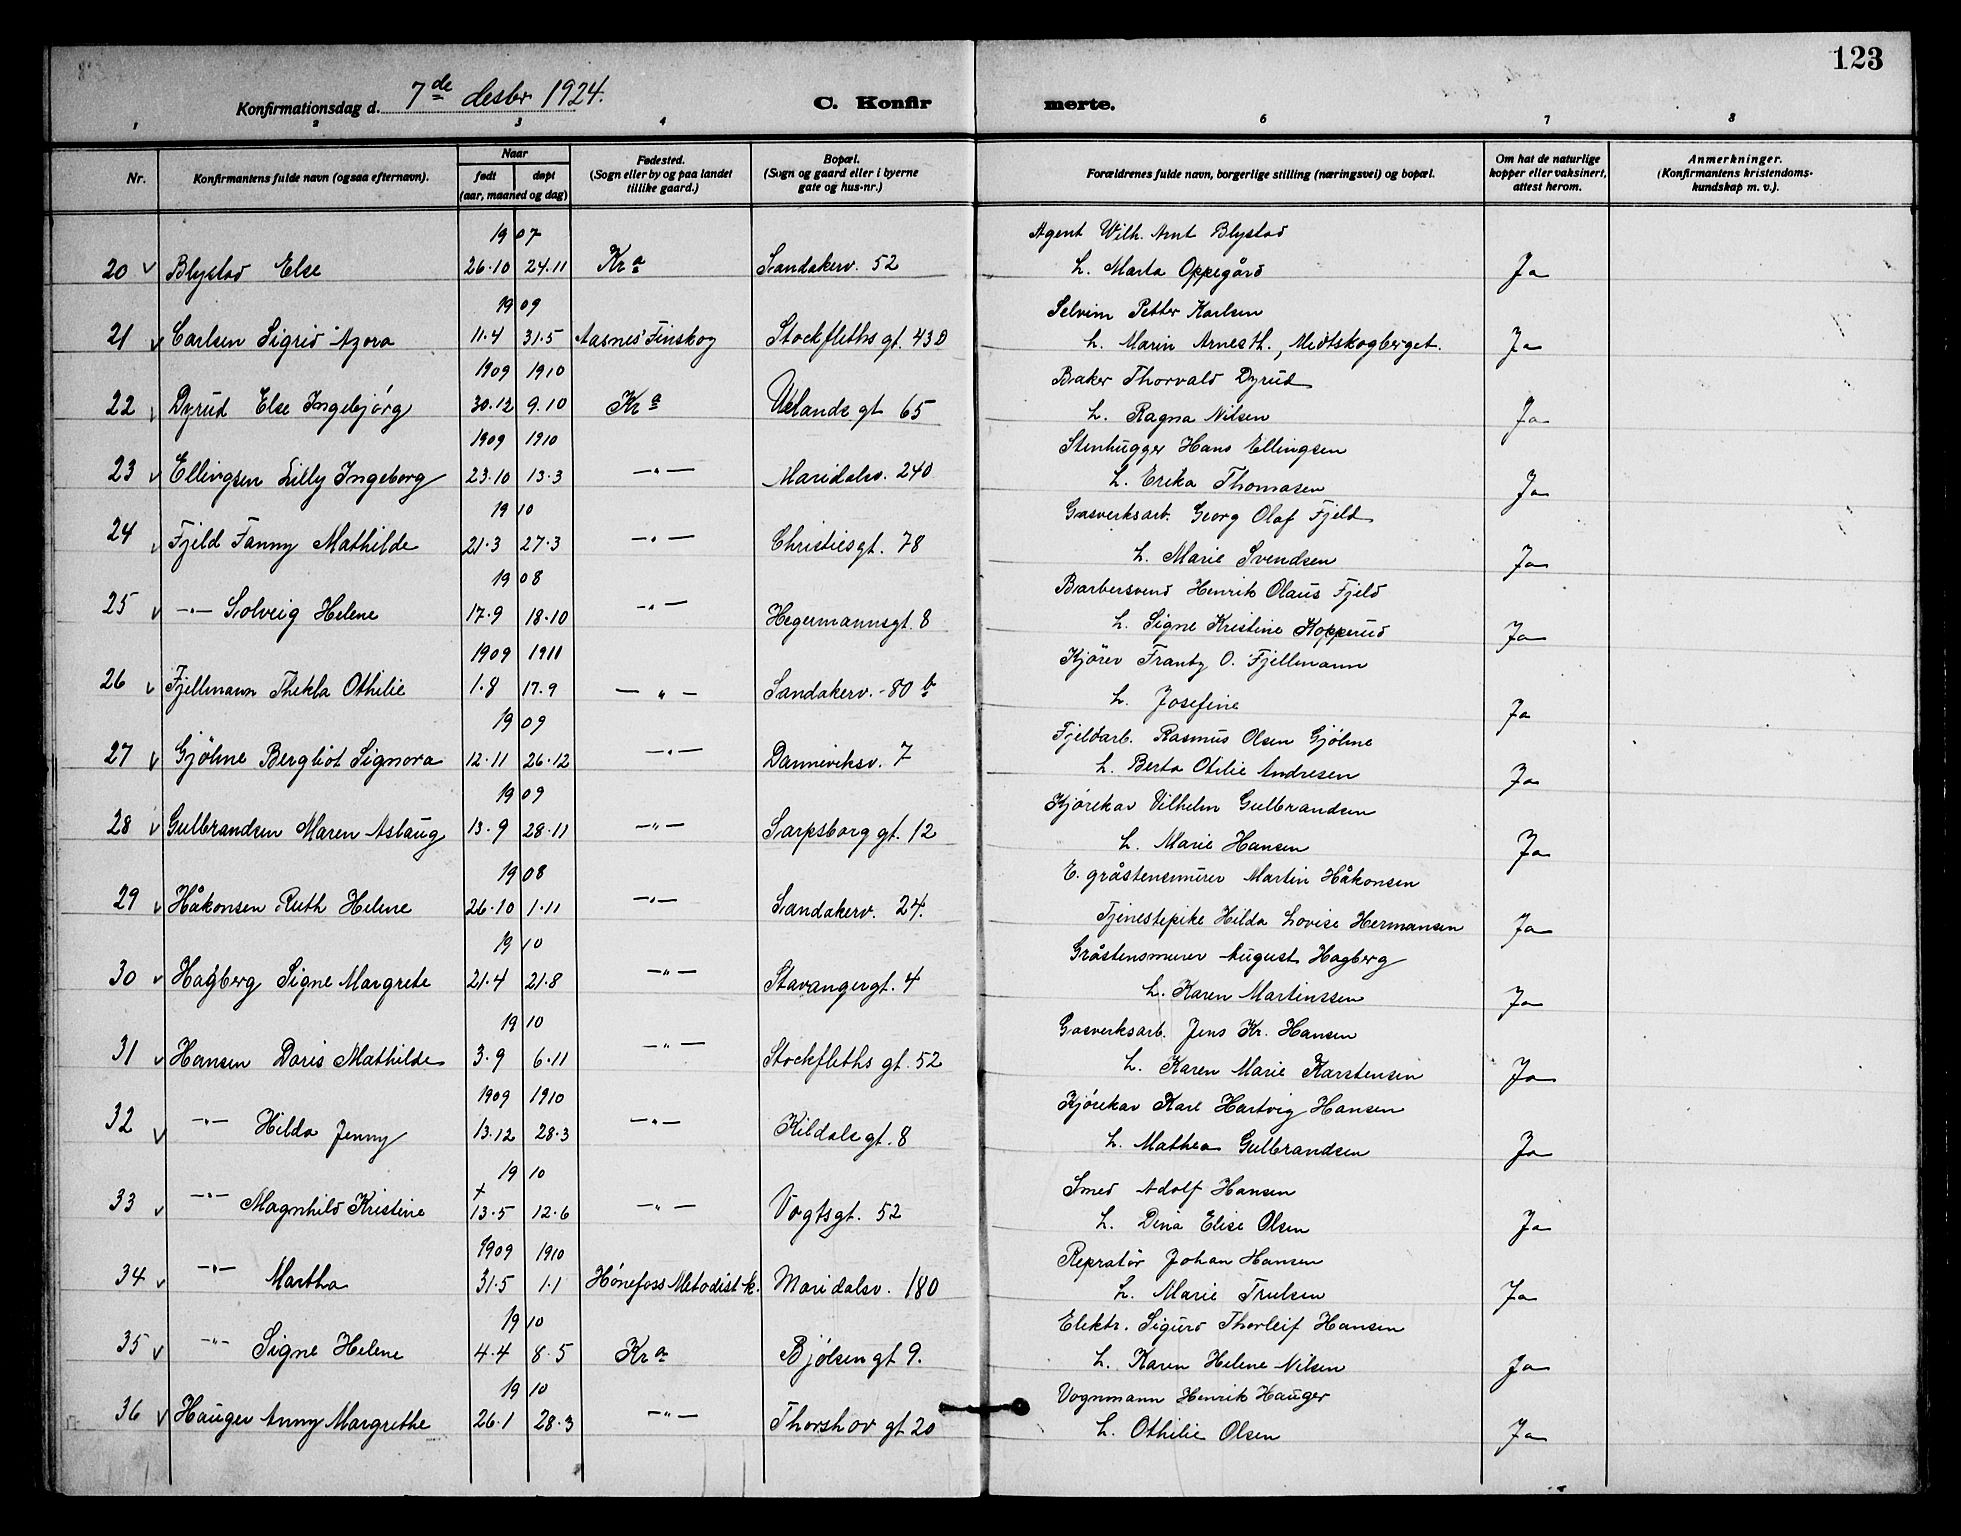 123
Konfirmationsdag d. 7de desbr 1924.
C. Konfir merte.
1 2 3 4 6 7 8
Nr.
Konfirmantens fulde navn (ogsaa efternavn).
Naar
født døpt
(aar, maaned og dag)
Fødested.
(Sogn eller by og paa landet
tillike gaard.)
Bopæl.
(Sogn og gaard eller i byerne
gate og hus-nr.)
Forældrenes fulde navn, borgerlige stilling (næringsvei) og bopæl.
Om hat de naturlige
kopper eller vaksinert,
attest herom.
Anmerkninger.
(Konfirmantens kristendoms-
kundskap m. v.).
19 07 Agent Wilh. Arnt Blystad
20 v Blystad Else 26.10 24.11 Kra Sandakerv. 52 h. Marta Oppegård Ja
19 09 Selveim Petter Karlsen
21 v Carlsen Sigrid Azora 11.4 31.5 Aasnes Finskog Stockfleths gt. 43 D h. Marin Arnesth., Midtskogberget. Ja
1909 1910 Baker Thorvald Dyrud
22 v Dyrud Else Ingebjörg 30.12 9.10 Kra Uelands gt 65 h. Ragna Nilsen Ja
1909 1910 Stenhugger Hans Ellingsen
23 v Ellingsen Lilly Ingeborg 23.10 13.3 —"— Maridalsv. 240 h. Erika Thomasen Ja
19 10 Gasverksarb. Georg Olaf Fjeld
24 v Fjeld Fanny Mathilde 21.3 27.3 —"— Christiesgt. 78 h. Marie Svendsen Ja
19 08 Barbersvend Henrik Olaus Fjeld
25 v —"— Solveig Helene 17.9 18.10 —"— Hegermannsgt. 8 h. Signe Kristine Kopperud Ja
1909 1911 Kjörer Frantz O. Fjellmann
26 v Fjellmann Thekla Othilie 1.8 17.9 —"— Sandakerv. - 80 b h. Josefine Ja
19 09 Fjeldarb. Rasmus Olsen Gjölme
27 v Gjölme Bergliot Signora 12.11 26.12 —"— Danneviksv. 7 h. Berta Otilie Andresen Ja
19 09 Kjörekar Vilhelm Gulbrandsen
28 v Gulbrandsen Maren Aslaug 13.9 28.11 —"— Sarpsborg gt. 12 h. Marie Hansen Ja
19 08 E. gråstensmurer Martin Håkonsen
29 v Håkonsen Ruth Helene 26.10 1.11 —"— Sandakerv. 24. Tjenestepike Hilda Lovise Hermansen Ja
19 10 Gråstensmurer August Hagberg
30 v Hagberg Signe Margrete 21.4 21.8 —"— Stavangergt. 4 h. Karen Martinssen Ja
19 10 Gasverksarb. Jens Kr. Hansen
31 v Hansen Doris Mathilde 3.9 6.11 —"— Stockfleths gt. 52 h. Karen Marie Karstensen Ja
1909 1910 Kjörekar Karl Hartvig Hansen
32 v —"— Hilda Jenny 13.12 28.3 —"— Kildals gt. 8 h. Mathea Gulbrandsen Ja
19 10 Smed Adolf Hansen
33 v —"— Magnhild Kristine + 13.5 12.6 —"— Vogtsgt. 52 h. Dina Elise Olsen Ja
1909 1910 Repratør Johan Hansen
34 v —"— Martha 31.5 1.1 Hønefoss Metodist k. Maridalsv. 180 h. Marie Trulsen Ja
19 10 Elektr. Sigurd Thorleif Hansen
35 v —"— Signe Helene 4.4 8.5 Kra Bjölsen gt 9. h. Karen Helene Nilsen Ja
19 10 Vognmann Henrik Hauger
36 v Hauger Anny Margrethe 26.1 28.3 —"— Thorshov gt 20 h. Othilie Olsen Ja